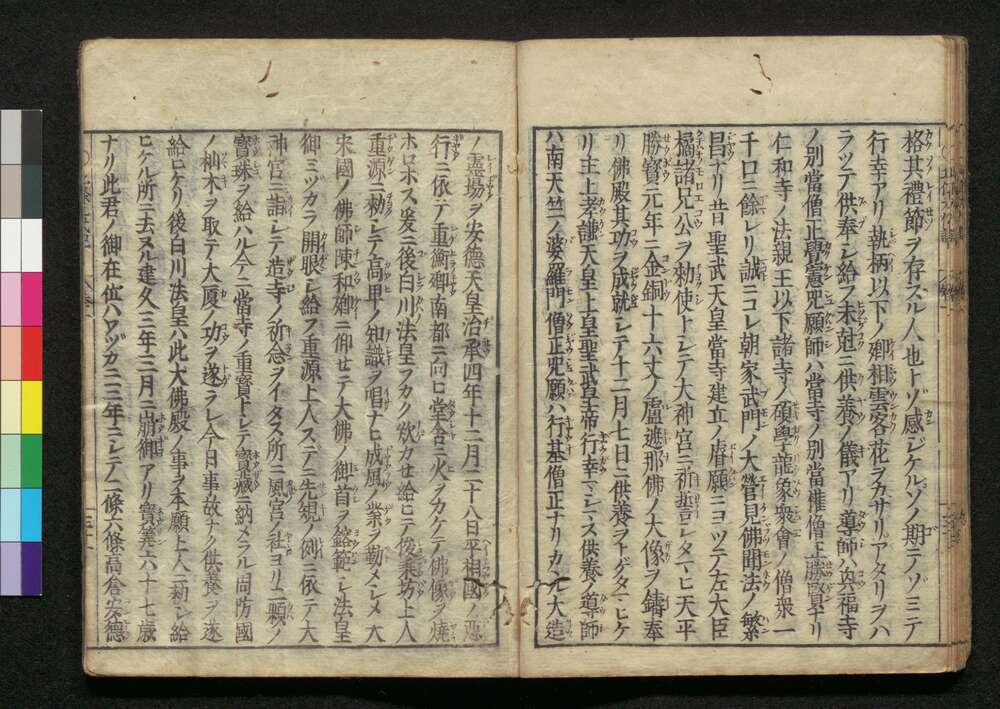 格其禮節ヲ存スル人也トソ感ジケルソノ期ニソミテ
行幸アリ執柄以下ノ卿相雲客花ヲカサリアタリヲハ
ラツテ供奉シ給フ未尅ニ供養ノ儀アリ導師ハ興福寺
ノ別當僧正覺憲咒願師ハ當寺ノ別當權僧正勝賢ナリ
仁和寺ノ法親王以下諸寺ノ碩學龍象衆會ノ僧衆一
千口ニ餘レリ誠ニコレ朝家武門ノ大營見佛聞法ノ繁
昌ナリ昔聖武天皇當寺建立ノ睿願ニヨツテ左大臣
橘諸兄公ヲ勅使トシテ大神宮ニ祈誓シタマヒ天平
勝寳元年ニ金銅十六丈ノ盧遮那佛ノ大像ヲ鑄奉
リ佛殿其功ヲ成就シテ十二月七日ニ供養ヲトゲタマヒケ
リ主上孝謙天皇上皇聖武皇帝行幸マシマス供養ノ導師
ハ南天竺ノ婆羅門僧正咒願ハ行基僧正ナリカヽル大造
ノ靈場ヲ安德天皇治承四年十二月二十八日平相國ノ惡
行ニ依テ重衡卿南都ニ向ヒ堂舍ニ火ヲカケテ佛像ヲ燒
ホロホス爰ニ後白川法皇フカク歎カセ給ヒテ俊乘坊上人
重源ニ勅シテ高卑ノ知識ヲ唱ナヒ成風ノ業ヲ勤メシメ大
宋國ノ佛師陳和卿ニ仰セテ大佛ノ御首ヲ鎔範シ法皇
御ミツカラ開眼シ給フ重源上人ステニ先規ノ例ニ依テ大
神宮ニ詣シテ造寺ノ祈念ヲイタス所ニ風宮ノ社ヨリ二顆ノ
寳珠ヲ給ハル今ニ當寺ノ重寳トシテ寳藏ニ納メラル周防國
ノ杣木ヲ取テ大厦ノ功ヲ遂ラレ今日事故ナク供養ヲ遂
給ヒケリ後白川法皇ハ此大佛殿ノ事ヲ本願上人ニ勅シ給
ヒケル所ニ去ヌル建久三年三月ニ崩御アリ寳筭六十七歳
ナリ此君ノ御在位ハワヅカニ三年ニシテ二條六條高倉安德